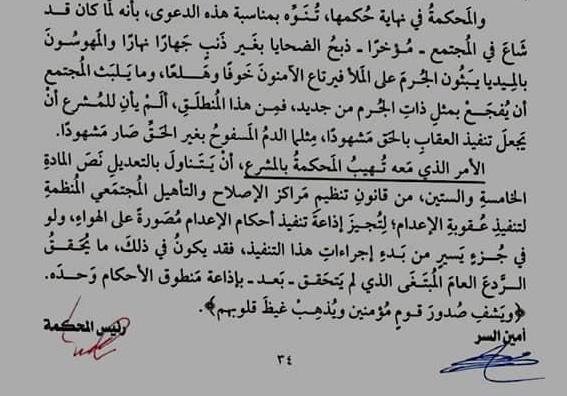 والمَحكمةُ في نهايةِ حُكمها، تُنَوِّه بمناسبة هذه الدعوى، بأنه لَمَّا كان قد
شاعَ في المُجتمعِ - مُؤخرًا - ذبحُ الضحايا بغَير ذَنبٍ جهارًا نهارًا والمهوسُونَ
بالميديا يبَثُون الجُرمَ على المَلأ فيرتاع الآمنونَ خَوفًا وهَلعًا، وما يَلبَث المُجتمع
أن يُفجَعَ بمثلِ ذاتِ الجُرم من جديد، فمِن هذا المُنطلَقِ، ألَمْ يأنِ للمُشرع أنْ
يَجعلَ تنفيذ العقابِ بالحَق مَشهودًا، مِثلما الدمُ المسفوحُ بغير الحَقِّ صارَ مَشهودًا.
الأمر الذي مَعه تُهيبُ المَحكمةُ بالمشرعِ، أنْ يَتناولَ بالتعديلِ نَصَ المادةِ
الخامسةِ والستين، من قانونِ تنظيمِ مَراكز الإصلاحِ والتأهيلِ المُجتمَعي المُنظمةِ
لتنفيذِ عُقوبةِ الإعدام؛ لِتُجيزَ إذاعةَ تنفيذِ أحكامِ الإعدام مُصَورَةً على الهواءِ، ولو
في جُزءٍ يَسيرٍ من بَدءِ إجراءاتِ هذا التنفيذ، فقد يكونُ في ذلكَ، ما يُحَققُ
الرَّدعَ العامَ المُبتَغى الذي لم يَتحَقق - بَعد - بإذاعةِ مَنطوقِ الأحكامِ وَحدَه.
﴿ويَشفِ صُدورَ قومٍ مُؤمنين ويُذهِبْ غيظَ قلوبهم﴾.
رئيس المحكمة
أمين السر
٣٤